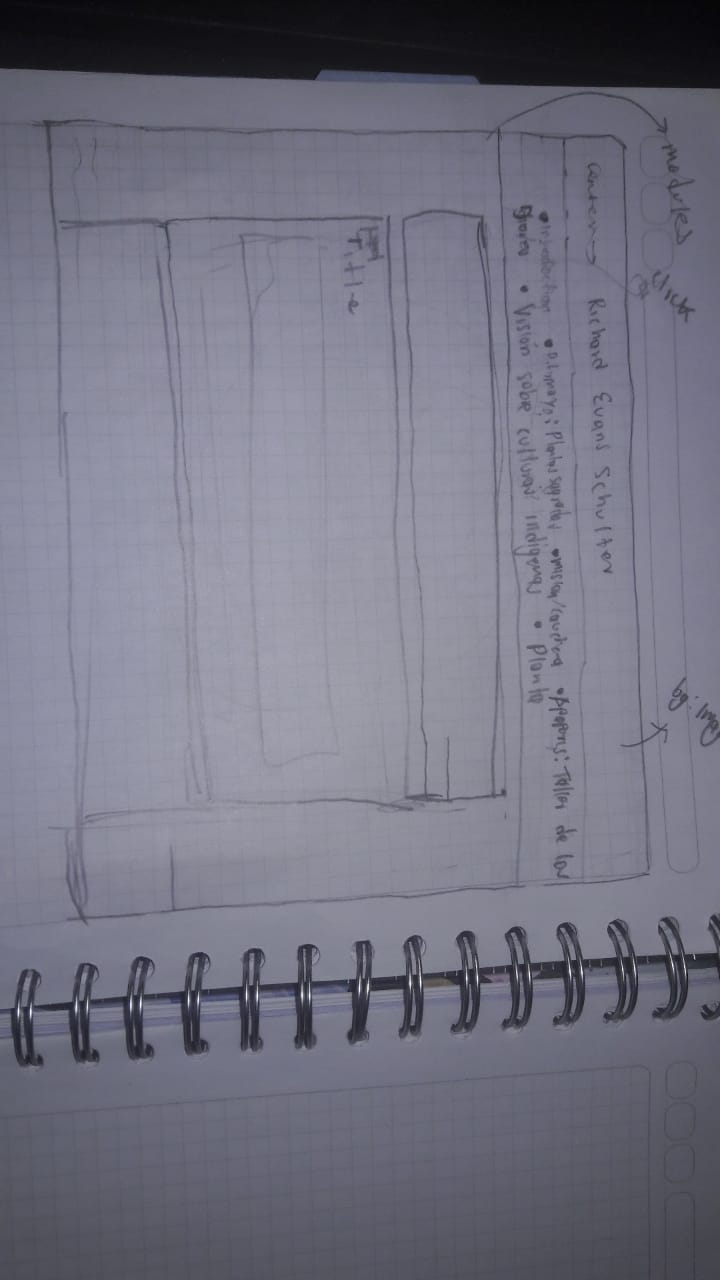 modules
click
bg: img
center → Richard Evans Schulter
• Introduction • : Plantas sagradas • mision/cauchera • Apaporis: Taller de los
• Visión sobre culturas indigenas • Planta
Title